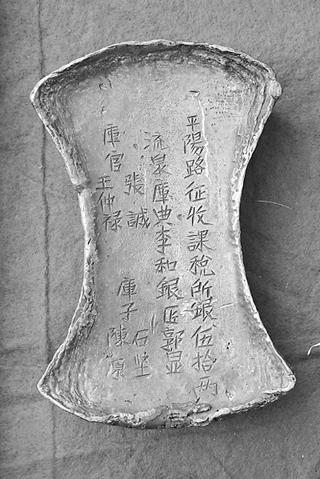 平陽路征收課稅所銀伍拾兩
流泉庫典李和銀匠郭显
張誠 石坚
庫官王仲禄 庫子陳